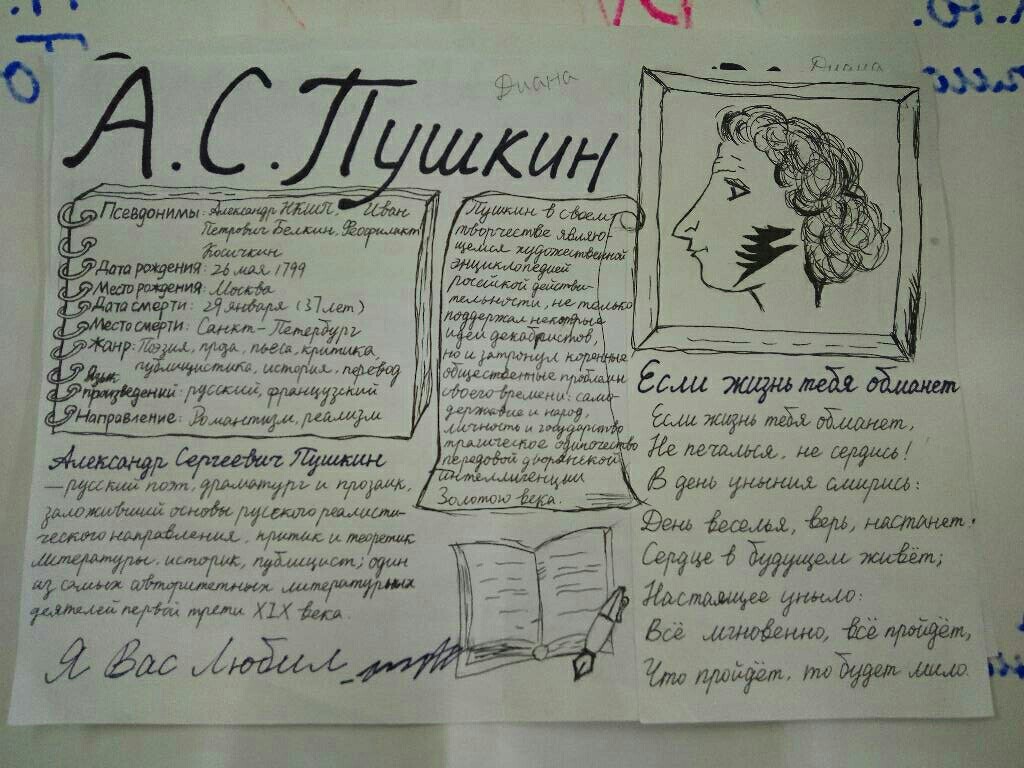 Диана
Диана
А.С.Пушкин
Псевдонимы: Александр НКШП, Иван
Петрович Белкин, Феофилакт
Косичкин
Дата рождения: 26 мая 1799
Место рождения: Москва
Дата смерти: 29 января (37 лет)
Место смерти: Санкт-Петербург
Жанр: Поэзия, проза, пьеса, критика,
публицистика, история, перевод
Язык
произведений: русский, французский
Направление: Романтизм, реализм
Александр Сергеевич Пушкин
— русский поэт, драматург и прозаик,
заложивший основы русского реалисти-
ческого направления, критик и теоретик
литературы, историк, публицист; один
из самых авторитетных литературных
деятелей первой трети XIX века.
Я Вас Любил
Пушкин в своем
творчестве являю-
щемся художественной
энциклопедией
российкой действи-
тельности, не только
поддержал некоторые
идеи декабристов,
но и затронул коренные
общественные проблемы
своего времени: само-
державие и народ,
личность и государство
трагическое одиночество
передовой дворянской
интеллигенции
Золотого века.
Если жизнь тебя обманет
Если жизнь тебя обманет,
Не печалься, не сердись!
В день уныния смирись:
День веселья, верь, настанет.
Сердце в будущем живёт;
Настоящее уныло:
Всё мгновенно, всё пройдёт,
Что пройдёт, то будет мило.